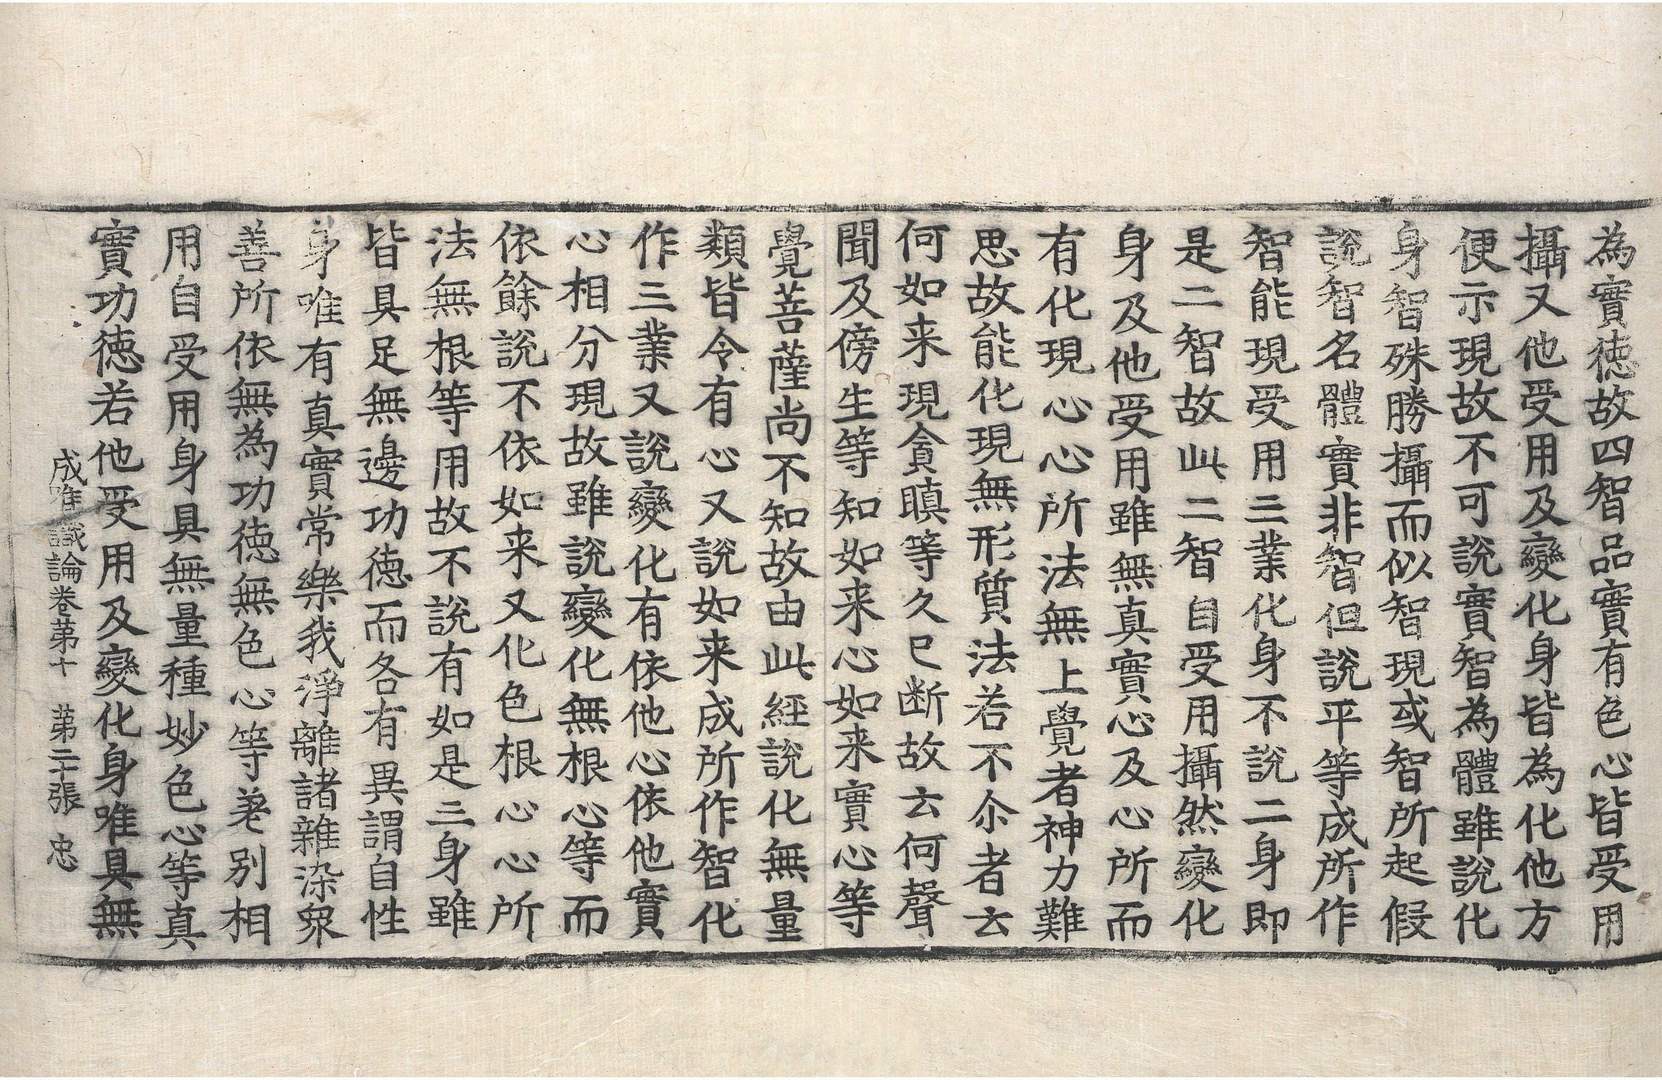 為實徳故四智品實有色心皆受用
攝又他受用及變化身皆為化他方
便示現故不可說實智為體雖說化
身智殊勝攝而似智現或智所起假
說智名體實非智但說平等成所作
智能現受用三業化身不說二身即
是二智故此二智自受用攝然變化
身及他受用雖無真實心及心所而
有化現心心所法無上覺者神力難
思故能化現無形質法若不尒者云
何如来現貪瞋等久已断故云何聲
聞及傍生等知如来心如来實心等
覺菩薩尚不知故由此經說化無量
類皆令有心又說如来成所作智化
作三業又說變化有依他心依他實
心相分現故雖說變化無根心等而
依餘說不依如来又化色根心心所
法無根等用故不說有如是三身雖
皆具足無邊功徳而各有異謂自性
身唯有真實常樂我淨離諸雜染衆
善所依無為功徳無色心等差別相
用自受用身具無量種妙色心等真
實功徳若他受用及變化身唯具無
成唯識論卷第十 第二十張 忠